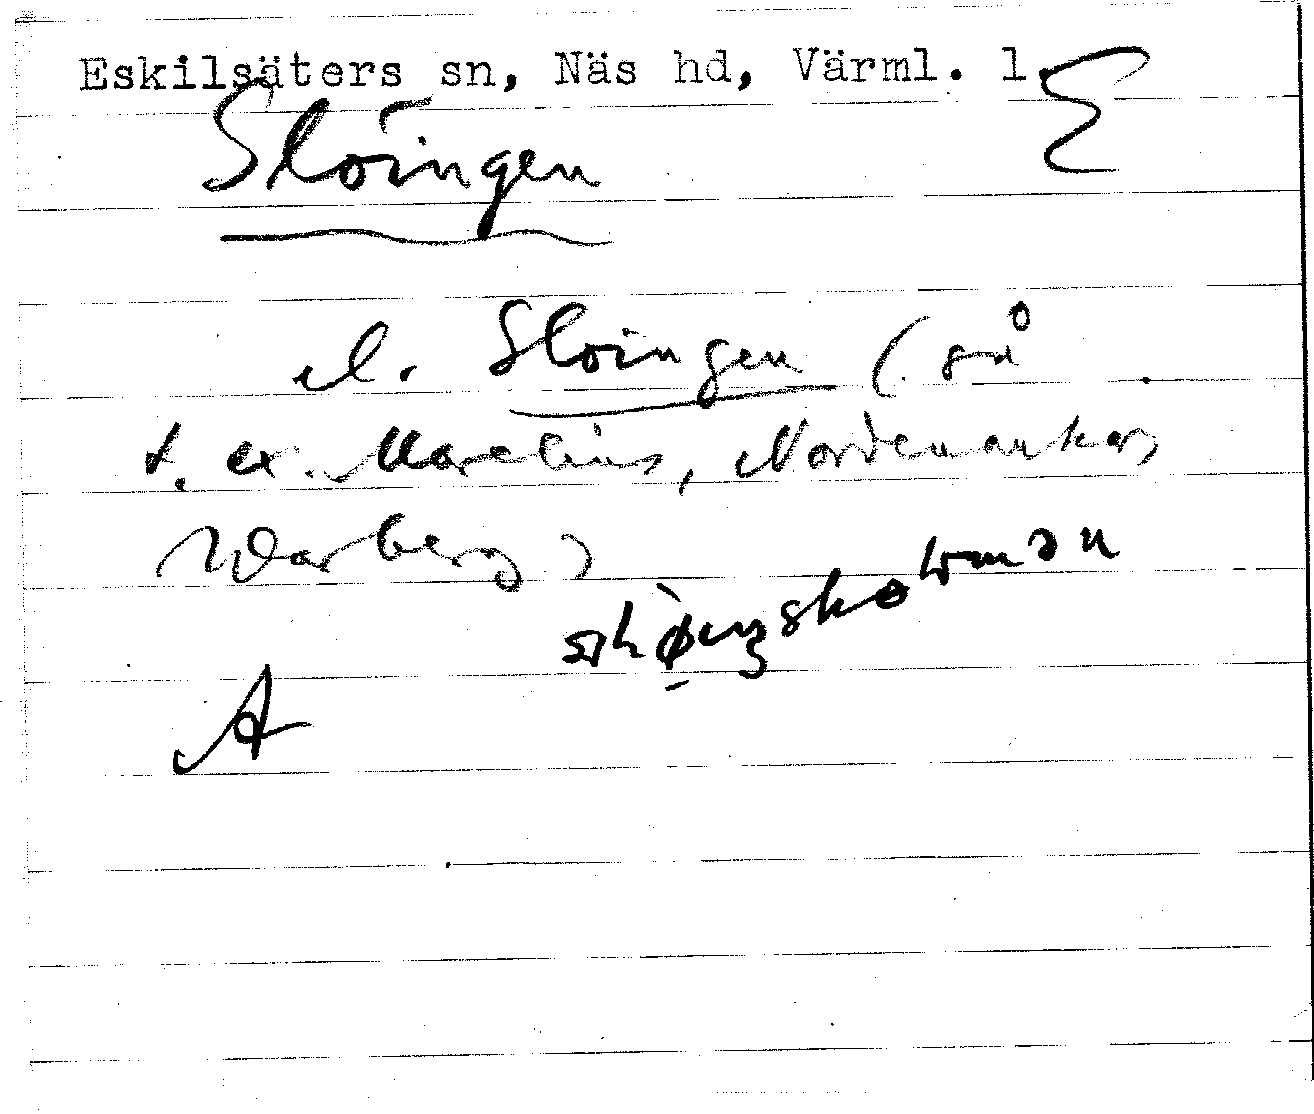 Eskilsäters sn, Näs hd, Värml. l.
Slöingen
el. Sloingen (så
t. ex. Marelius, Nordenankar,
Warberg)
A